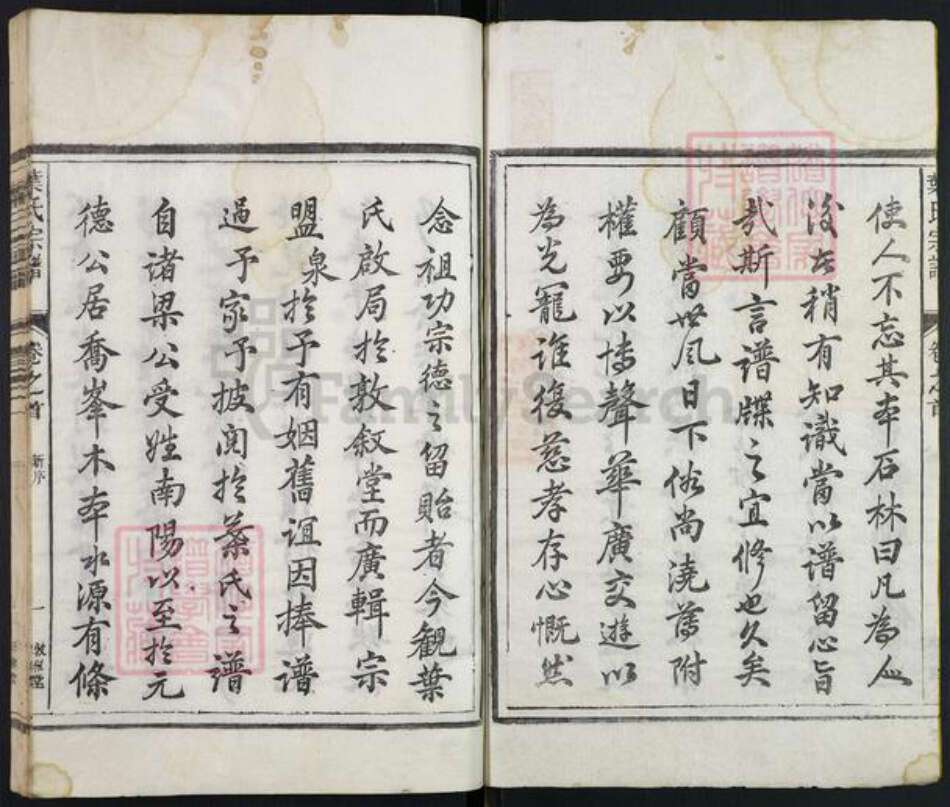 使人不忘其本石林曰凡為人
後者稍有知識當以譜留心旨
哉斯言譜牒之宜修也久矣
顧當世風日下俗尚澆薄附
權要以博聲華廣交遊以
為光寵誰復慈孝存心慨然
念祖功宗德之留貽者今觀葉
氏啟局於敦敘堂而廣輯宗
盟泉於予有姻舊誼因捧譜
過予家予披閱於葉氏之譜
自諸梁公受姓南陽以至於元
德公居喬峯木本水源有條
葉氏宗譜
卷之首
新序
一
敦敘堂
FamilySearch